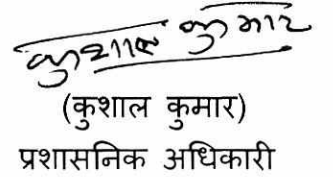 कुशाल कुमार
(कुशाल कुमार)
प्रशासनिक अधिकारी